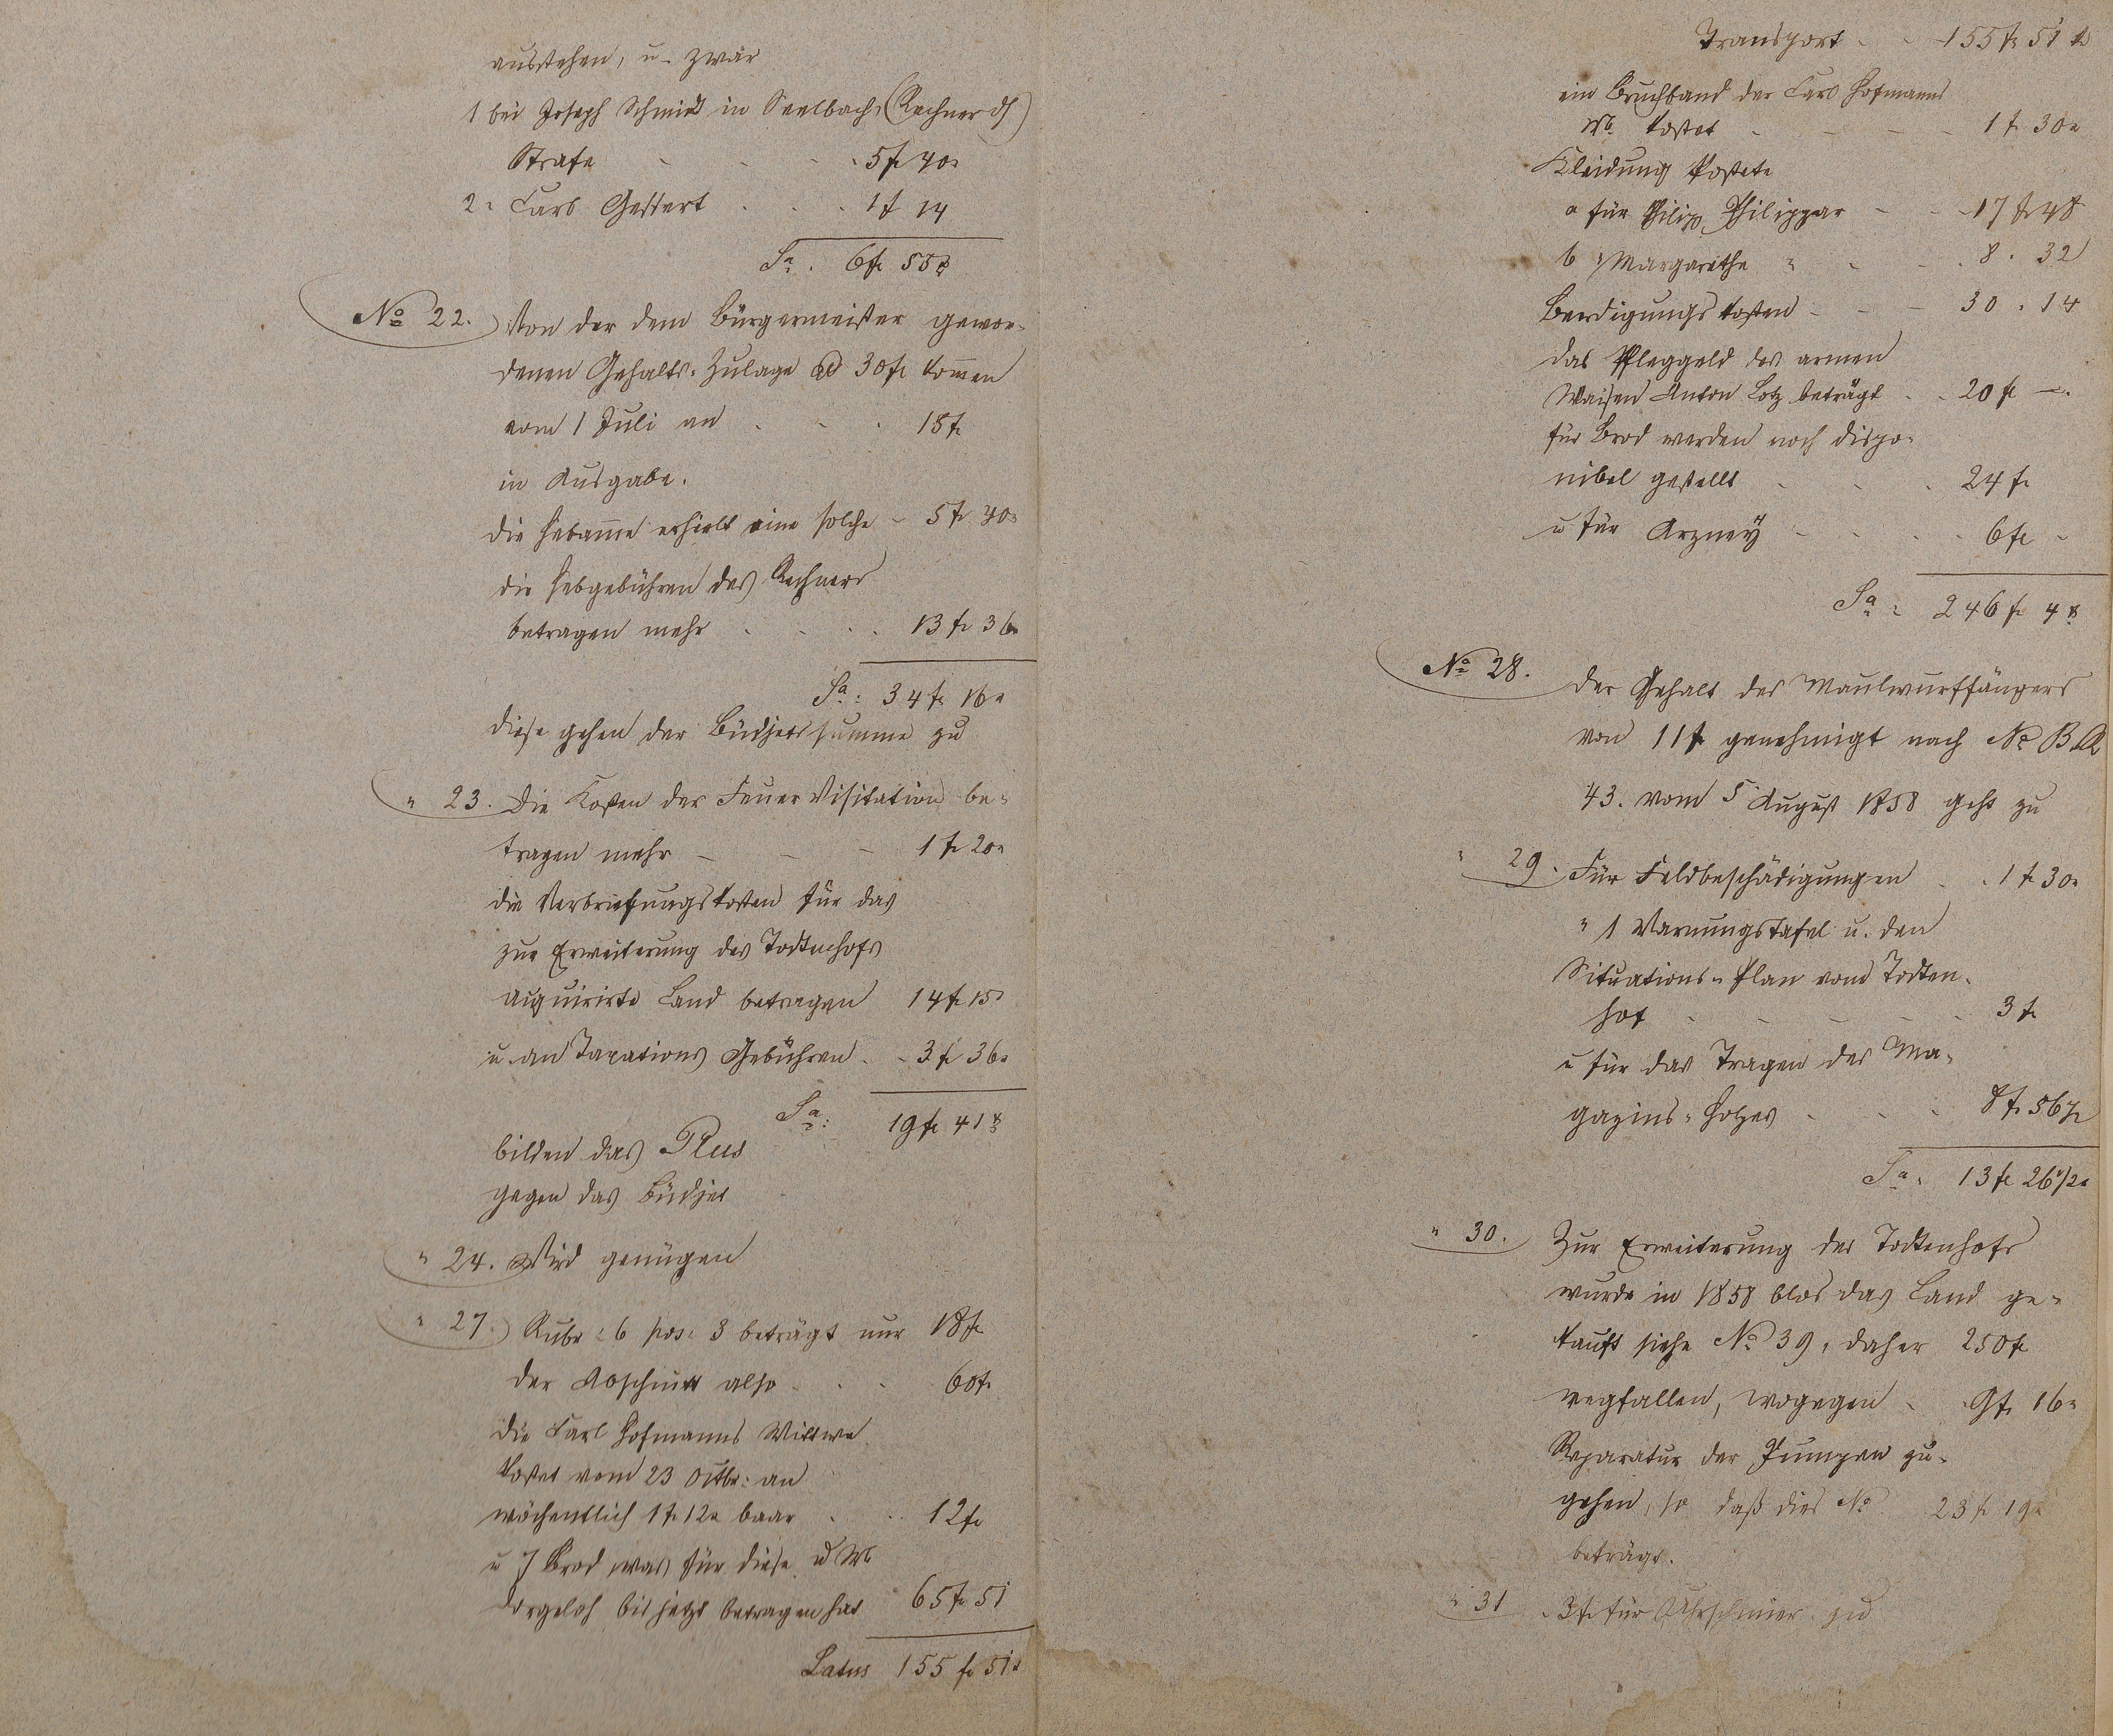 ausstehen, u. zwar
1 bei Joseph Schmidt in Seelbach, (Rechner ds)
Strafe - - - 5 f 40 x
2. Carl Gestert . . . 1 f 14
Sa. 6 f 55 x
No 22. Von der dem Bürgermeister gewor-
denen Gehalts-Zulage ad 30 f kommen
vom 1 Juli an . . . 15 f
in Ausgabe.
die Hebamme erhielt eine solche - 5 f 40 x
die Hebgebühren des Rechners
betragen mehr . . . . 13 f 36 x
Sa: 34 f 16 x
diese gehen der Büdjetssumme zu
" 23. Die Kosten der Feuer Visitation be-
tragen mehr - - - 1 f 20 x
die Verbriefungskosten für das
zur Erweiterung des Todtenhofs
acquirirte Land betragen 14 f 15 x
u. an Taxations Gebühren - 3 f 36 x
Sa: 19 f 41 x
bilden das Plus
gegen das Büdjet
" 24. Wird genügen
" 27. Rubr: 6 pos: 3 beträgt nur 18 f
der Abschnitt also . . . 60 f
die Carl Hofmanns Wittwe
kostet vom 23 Octbr: an
wöchentlich 1 f 12 x baar . . 12 f
u 7 Brod, was für diese u
bis jetzt betragen hat 65 f 51
Latus 155 f 51 x
Transport - - 155 f 51 x
ein Bruchband der Carl Hofmanns
Wb. kostet - - - - 1 f 30 x
Kleidung kostete
a für Philipp Philippar - - 17 f 48
b " Margarethe " - - 8 . 32
Beerdigungskosten - - - 30 . 14
das Pfleggeld des armen
Waisen Anton Lotz beträgt . . 20 f -
für Brod werden noch dispo-
nibel gestellt . . . 24 f
u für Arzney - - - - 6 f -
Sa: 246 f 4 x
No 28. der Gehalt des Maulwurffängers
von 11 f genehmigt nach No B.R
43. vom 5 August 1858 geht zu
" 29. Für Feldbeschädigungen . . 1 f 30 x
" 1 Warnungstafel u. den
Situations-Plan vom Todten-
hof - - - - - 3 f
u für das Tragen des Ma-
gazins-Holzes - - - 8 f 56 1/2
Sa: 13 f 26 1/2 x
" 30. Zur Erweiterung des Todtenhofs
wurde in 1858 blos das Land ge-
kauft siehe No 39, daher 250 f
wegfallen, wogegen - 9 f 16 x
Reparatur der Pumpen zu-
gehen, so daß dies No 23 f 19 x
beträgt.
" 31 3 f für Uhrschmier zu